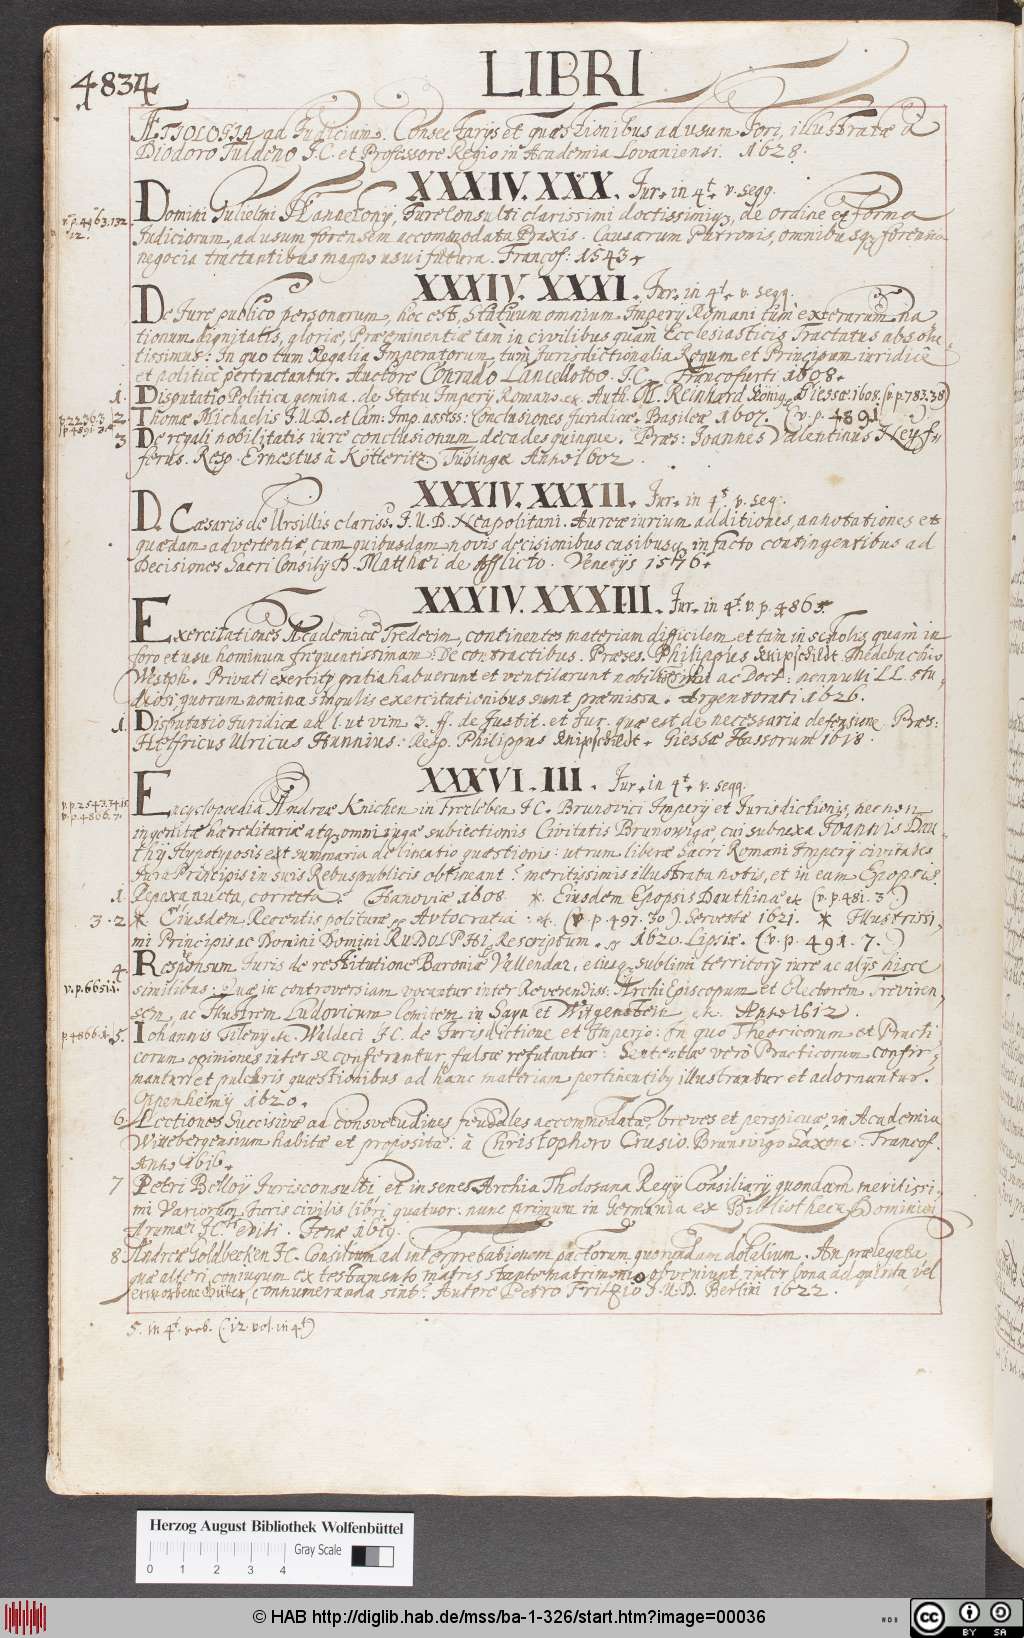 4834
LIBRI
ÆTIOLOGIA ad Judicium. Consectarijs et quæstionibus ad usum Fori, illustratæ à
Diodoro Tuldeno J.C. et Professore Regio in Academia Lovaniensi. 1628.
XXXIV. XXX. Jur. in 4t. v. seqq.
v. p. 4463.132.
12.
Domini Gulielmi Hannetonij, Jureconsulti clarissimi doctissimiq3, de ordine et forma
Judiciorum, ad usum forensem accommodata Praxis. Causarum Patronis, omnibusq3 forensia
negocia tractantibus magno usui futura. Francof: 1543.
XXXIV. XXXI. Jur. in 4t. v. seqq.
De Jure publico personarum, hoc est, Statuum omnium Imperij Romani tùm exterarum Na
tionum dignitatis, gloriæ, Præeminentiæ tàm in civilibus quàm Ecclesiasticis Tractatus absolu-
tissimus: In quo tum Regalia Imperatorum, tùm Jurisdictionalia Regum et Principum iuridicè
et politicè pertractantur. Auctore Conrado Lancellotto. J.C. Francofurti 1608.
1. Disputatio Politica gemina. de Statu Imperij Romano. Auth. M. Reinhard König. Giessæ. 1608. (v. p. 783.38)
2. Thomæ Michaelis J.U.D. et Cam: Imp. assess: Conclusiones Juridicæ. Basileæ 1607. (v. p. 4891.)
p. 4891. 3.
3 De regali nobilitatis iure conclusionum decades quinque. Præs: Joannes Valentinus Neyf-
ferus. Resp. Ernestus à Kötteritz. Tubingæ Anno 1602.
XXXIV. XXXII. Jur. in 4t. v. seq.
D. Cæsaris de Ursillis clariss. J.U.D. Neapolitani. Aureæ iurium additiones, annotationes et
quædam advertentiæ, cum quibusdam novis decisionibus casibusq3 in facto contingentibus ad
Decisiones Sacri Consilij D. Matthæi de Afflicto. Venetijs 1576.
XXXIV. XXXIII. Jur. in 4t. v. p. 4865.
Exercitationes Academicæ Tredecim, continentes materiam difficilem et tàm in scholis quàm in
foro et usu hominum frequentissimam: De contractibus. Præses. Philippus Knipschildt Medebachio
Westph. Privati exercitij gratia habuerunt et ventilarunt nobilissimi ac Doct: nonnulli LL. stu-
diosi quorum nomina singulis exercitationibus sunt præmissa. Argentorati 1626.
1. Disputatio Juridica ad l. ut vim 3. ff. de Justit. et Jur. quæ est de necessaria defensione. Præs:
Helfricus Ulricus Hunnius: Resp. Philippus Knipschildt. Giessæ Hassorum 1618.
XXXVI. III. Jur. in 4t. v. seqq.
v. p. 2543.34.
v. p. 4806. 7.
Encyclopædia Andreæ Knichen in Trotleben J.C. Brunovici Imperij et Jurisdictionis, necnon
ingenitæ hæreditariæ atq3 omniiugæ subiectionis Civitatis Brunovigæ, cui subnexa Joannis Dau-
thij Hypotyposis est summaria delineatio quæstionis: utrum liberæ Sacri Romani Imperij civitates
Jura Principis in suis Rebuspublicis obtineant? meritissimis illustrata notis, et in eam Epopsis
1 Repexa aucta, correcta. Hanoviæ 1608. * Eiusdem Epopsis Dauthinæ etc (v. p. 481. 3.)
3. 2 * Eiusdem Recentis politura pro Autocratia: etc. (v. p. 497. 30.) Servestæ 1621. * Illustrissi-
mi Principis ac Domini Domini RUDOLPHI, Rescriptum. 1620. Lipsiæ. (v. p. 491. 7.)
4. Responsum Juris de restitutione Baroniæ Vallendar, eiusq3 sublimi territorij iure ac alijs hisce
v. p. 6651.
similibus: Quæ in controversiam vocantur inter Reverendiss: ArchiEpiscopum et Electorem Treviren-
sem, ac Illustrem Ludovicum Comitem in Sayn et Witgenstein, etc. Anno 1612.
p. 4866. 1. 5. Johannis Tileny etc. Waldeci J.C. de Jurisdictione et Imperio: In quo Theoricorum et Practi-
corum opiniones inter se conferantur, falsæ refutantur: Sententiæ verò Practicorum confir-
mantur et pulchris quæstionibus ad hanc materiam pertinentibus illustrantur et adornantur.
Oppenhemij 1620.
6 Lectiones Succisivæ ad consvetudines feudales accommodatæ, breves et perspicuæ, in Academia
Witebergensium habitæ et propositæ: à Christophoro Crusio. Brunsvigo Saxone: Francof.
Anno 1616.
7 Petri Belloij Jurisconsulti et in senes Archia Tholosana Regij Consiliarij quondam meritissi-
mi Variorum Juris civilis libri quatuor: nunc primum in Germania ex Bibliotheca Dominici
Arumæi JCti editi. Jenæ 1619.
8 Andreæ Goldbecken JC. Consilium ad interpretationem pactorum quorundam dotalium. An prælegata
quæ alteri coniugum ex testamento matris stante matrimonio obveniunt, inter bona adquisita vel
erworbene Güter, connumeranda sint? Autore Petro Fritzio J.U.D. Berlini 1622.
5. in 4t. (12 vol. in 4t)
Herzog August Bibliothek Wolfenbüttel
Gray Scale
0 1 2 3 4
© HAB http://diglib.hab.de/mss/ba-1-326/start.htm?image=00036
WDB
cc BY SA